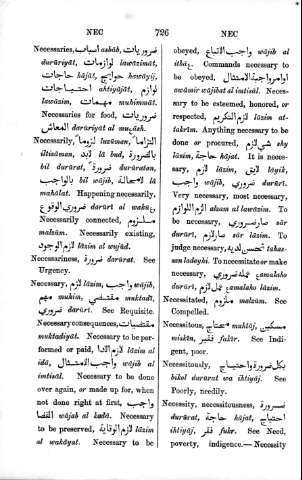 NEC 726 NEC
Necessaries, اسباب asbáb, ضروريات
durúriyát, لوازمات lawázimát,
حاجات háját, حوايج hawáyij,
احتياجات ahtiyáját, لوازم
lawázim, مهمات muhimmát.
Necessaries for food, ضروريات
المعاش darúriyát al muäsh.
Necessarily, لزوما lawöman, التزاما
iltizáman, لابد lá bud, بالضرورة
bil darúrat, ضرورة darúratan,
بالواجب bil wájib, لا محالة lá
mahálat. Happening necessarily,
ضروري الوقوع darúrí al wakú.
Necessarily connected, ملزوم
malzúm. Necessarily existing,
لازم الوجود lázim al wujúd.
Necessariness, ضرورة darúrat. See
Urgency.
Necessary, لازم lázim, واجب wájib,
مهم muhim, مقتضي muktadí,
ضروري darúrí. See Requisite.
Necessary consequences, مقتضيات
muktadiyát. Necessary to be per-
formed or paid, لازم الادا lázim al
idá, واجب الامتثال wájib al
imtisál. Necessary to be done
over again, or made up for, when
not done right at first, واجب
القضا wájab al kadá. Necessary
to be preserved, لازم الوقاية lázim
al wakáyat. Necessary to be
obeyed, واجب الاتباع wájib al
itbáä. Commands necessary to
be obeyed, اوامر واجبة الامتثال
awámir wájibat al imtisál. Neces-
sary to be esteemed, honored, or
respected, لازم التكريم lázim at-
takrím. Anything necessary to be
done or procured, شي لازم shy
lázim, حاجة hájat. It is neces-
sary, لازم lázim, لايق láyik,
واجب wájib, ضروري darúrí.
Very necessary, most necessary,
الزم اللوازم alzam al lawázim. To
be necessary, صار ضروري sár
darúrí, صار لازم sár lázim. To
judge necessary, تحسن لديه tahas-
san ladayhi. To necessitate or make
necessary, عمله ضروري
darúrí, عمل لازم lázim.
Necessitated, ملزوم malzúm. See
Compelled.
Necessitous, محتاج muhtáj, مسكين
miskín, فقير fakír. See Indi-
gent, poor.
Necessitously, بكل ضرورة واحتياج
bikol darúrat wa ihtiyáj. See
Poorly, needily.
Necessity, necessitousness, ضرورة
durúrat, حاجة hájat, احتياج
ihtiyáj, فقر fakir. See Need,
poverty, indigence.— Necessity